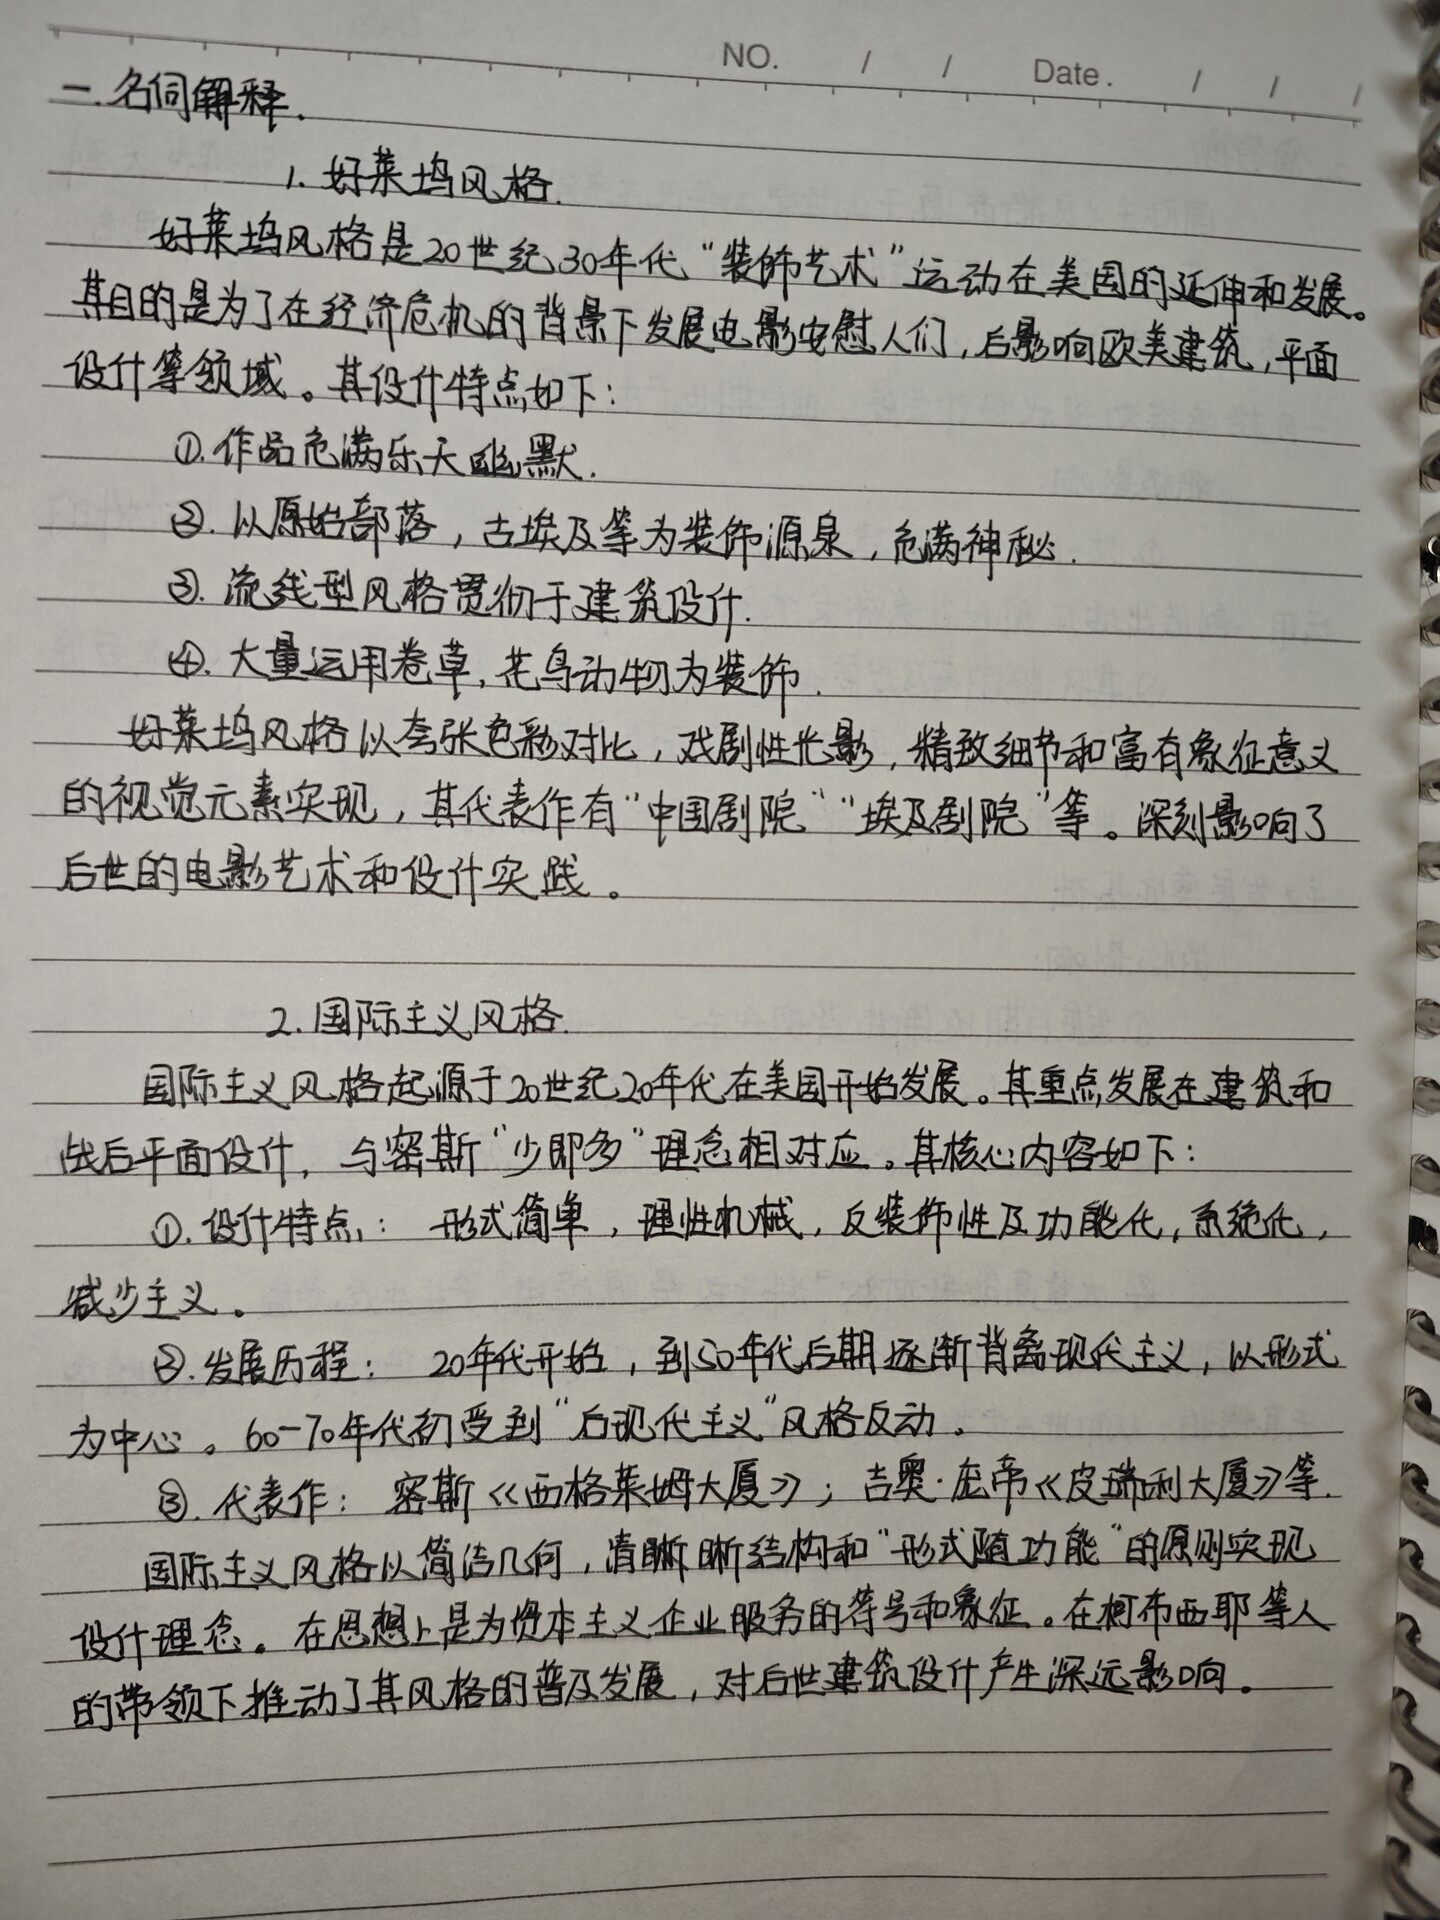 NO. / / Date. / / /
一.名词解释.
1.好莱坞风格.
好莱坞风格是20世纪30年代“装饰艺术”运动在美国的延伸和发展。
其目的是为了在经济危机的背景下发展电影安慰人们,后影响欧美建筑,平面
设计等领域。其设计特点如下:
①.作品充满乐天幽默.
②.以原始部落,古埃及等为装饰源泉,充满神秘.
③.流线型风格贯彻于建筑设计.
④.大量运用卷草,花鸟动物为装饰.
好莱坞风格以夸张色彩对比,戏剧性光影,精致细节和富有象征意义
的视觉元素实现,其代表作有“中国剧院”“埃及剧院”等。深刻影响了
后世的电影艺术和设计实践。
2.国际主义风格.
国际主义风格起源于20世纪20年代在美国开始发展。其重点发展在建筑和
战后平面设计,与密斯“少即多”理念相对应。其核心内容如下:
①.设计特点: 形式简单,理性机械,反装饰性及功能化,系统化,
减少主义。
②.发展历程: 20年代开始,到50年代后期逐渐背离现代主义,以形式
为中心。60-70年代初受到“后现代主义”风格反动。
③.代表作: 密斯《西格莱姆大厦》;吉奥·庞帝《皮瑞利大厦》等.
国际主义风格以简洁几何,清晰晰结构和“形式随功能”的原则实现
设计理念。在思想上是为资本主义企业服务的符号和象征。在柯布西耶等人
的带领下推动了其风格的普及发展,对后世建筑设计产生深远影响。